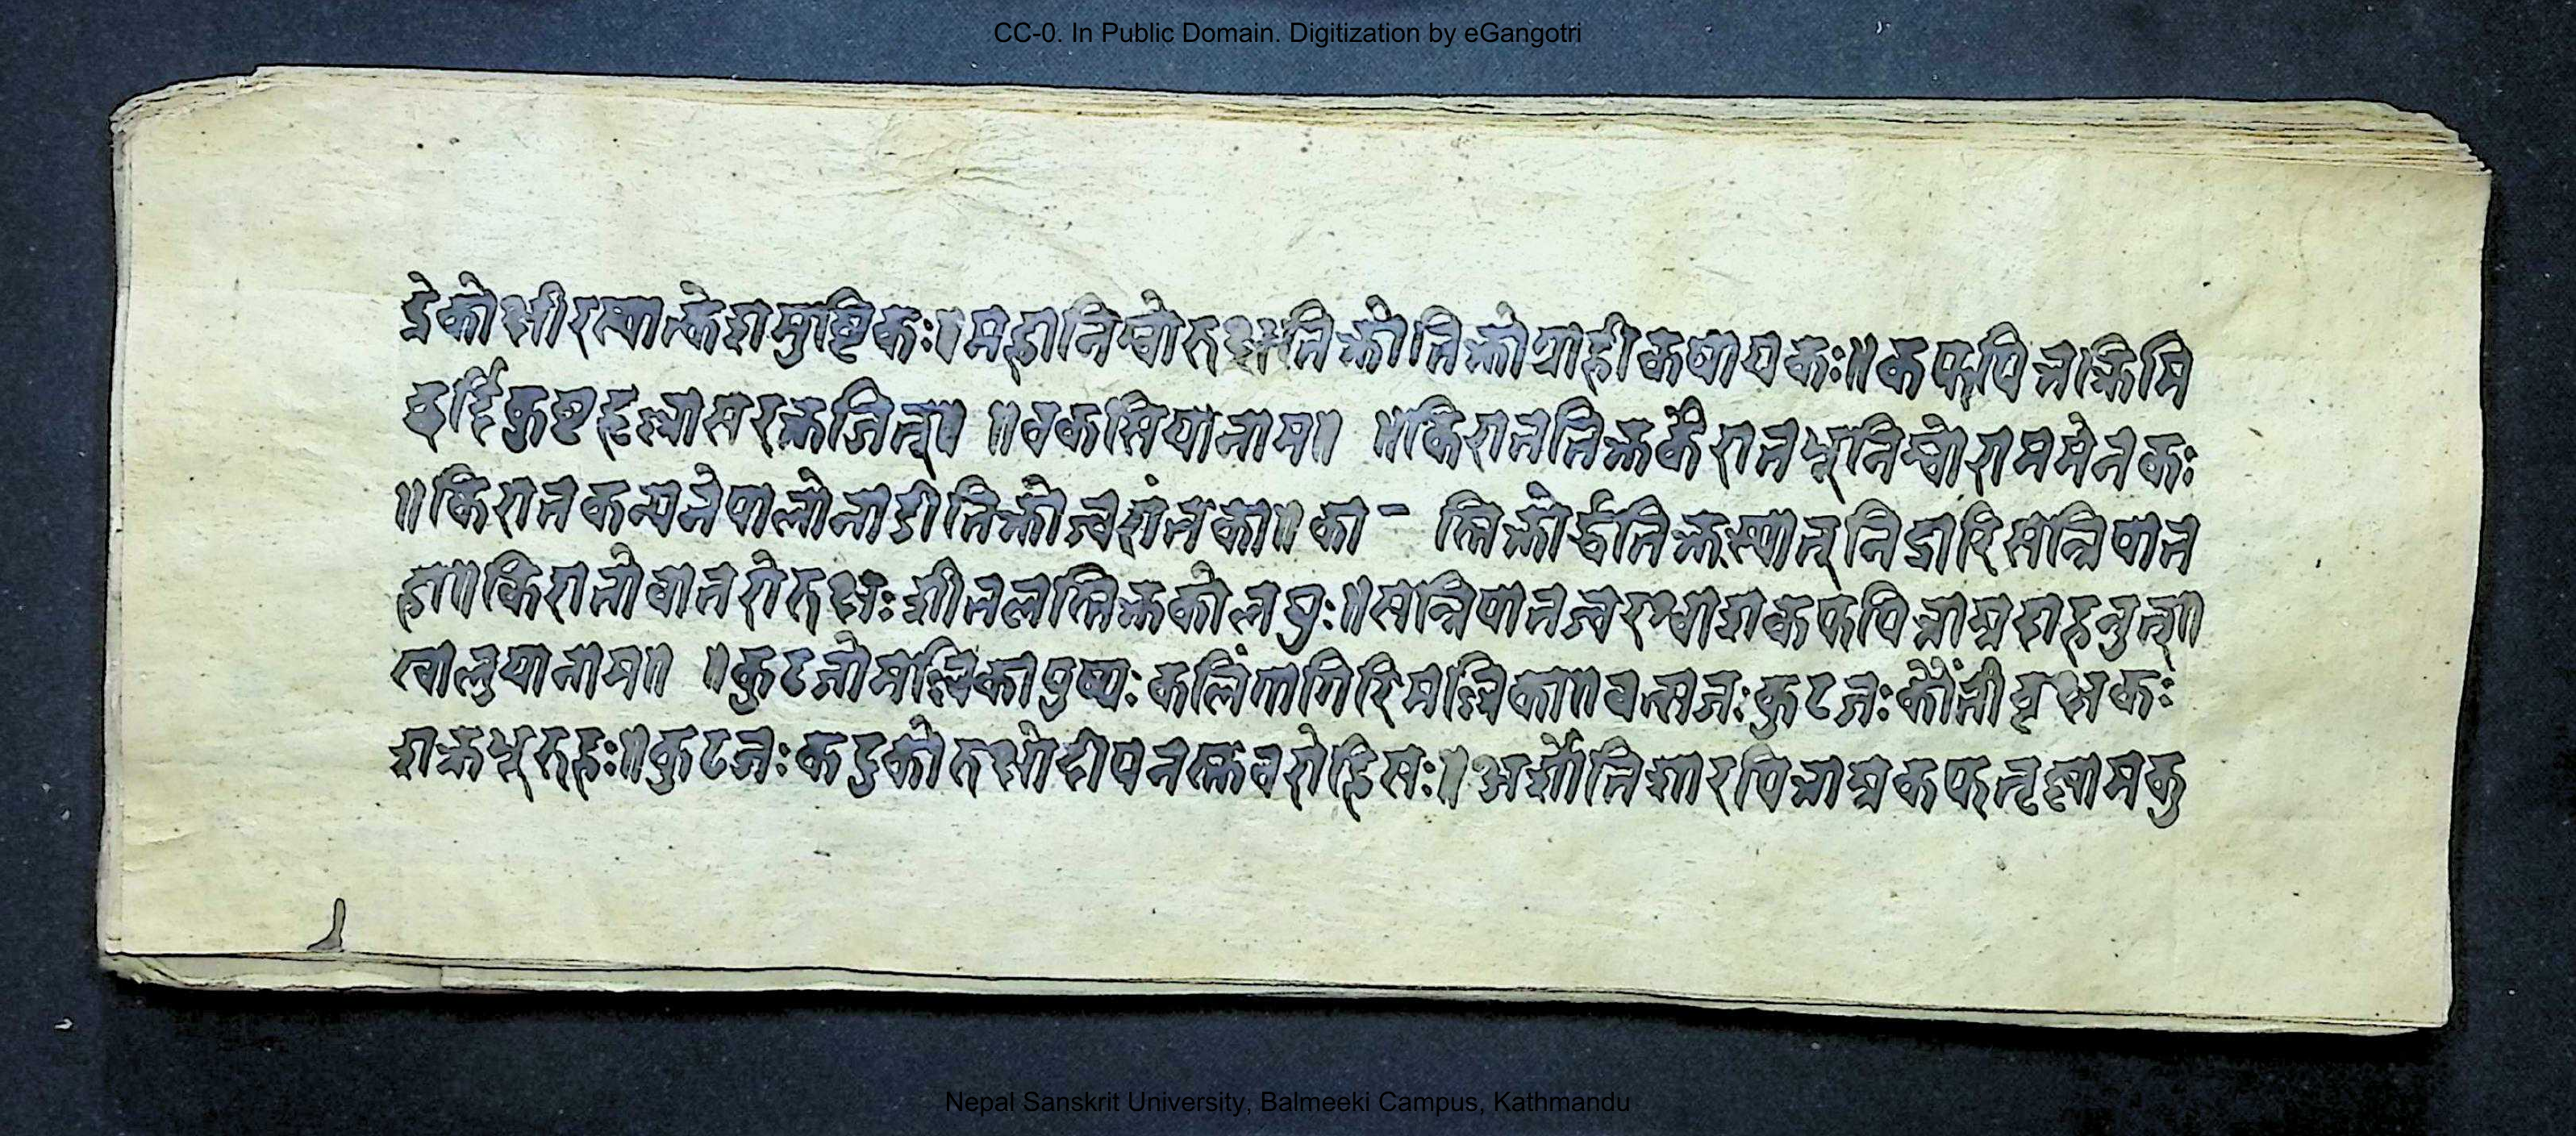 CC-0. In Public Domain. Digitization by eGangotri
द्रेको क्षीरस्यात्केशमुष्टिकः॥महानिम्बोरुक्षतिक्तोतिक्तोग्राहीकषायकः॥कफपित्तक्रिमि
कुष्टहृल्लासरक्तजित्॥ ॥वकसियानाम॥ ॥किराततिक्तकैरातभूनिम्बोराममेनकः
॥किरातकन्यनेपालोनाडीतिक्तोज्वरांतका॥का - तिक्तोर्द्धतिक्तस्यात्निद्रारिसन्निपात
हा॥किरातोवातरोरुक्षः शीतलस्तिक्तकोलघुः॥सन्निपातज्वरश्वाशकफपित्तास्रदाहनुत्॥
यानाम॥ ॥कुटजोमल्लिकापुष्पः कलिंगागिरिमल्लिका॥वत्सजः कुटजः कौटीवृक्षकः
शक्रभूरुहः॥कुटजः कटुकोरुक्षोदीपनस्तुवरोहिसः॥अर्शोतिशारपित्तास्रकफतृष्णामकु
Nepal Sanskrit University, Balmeeki Campus, Kathmandu